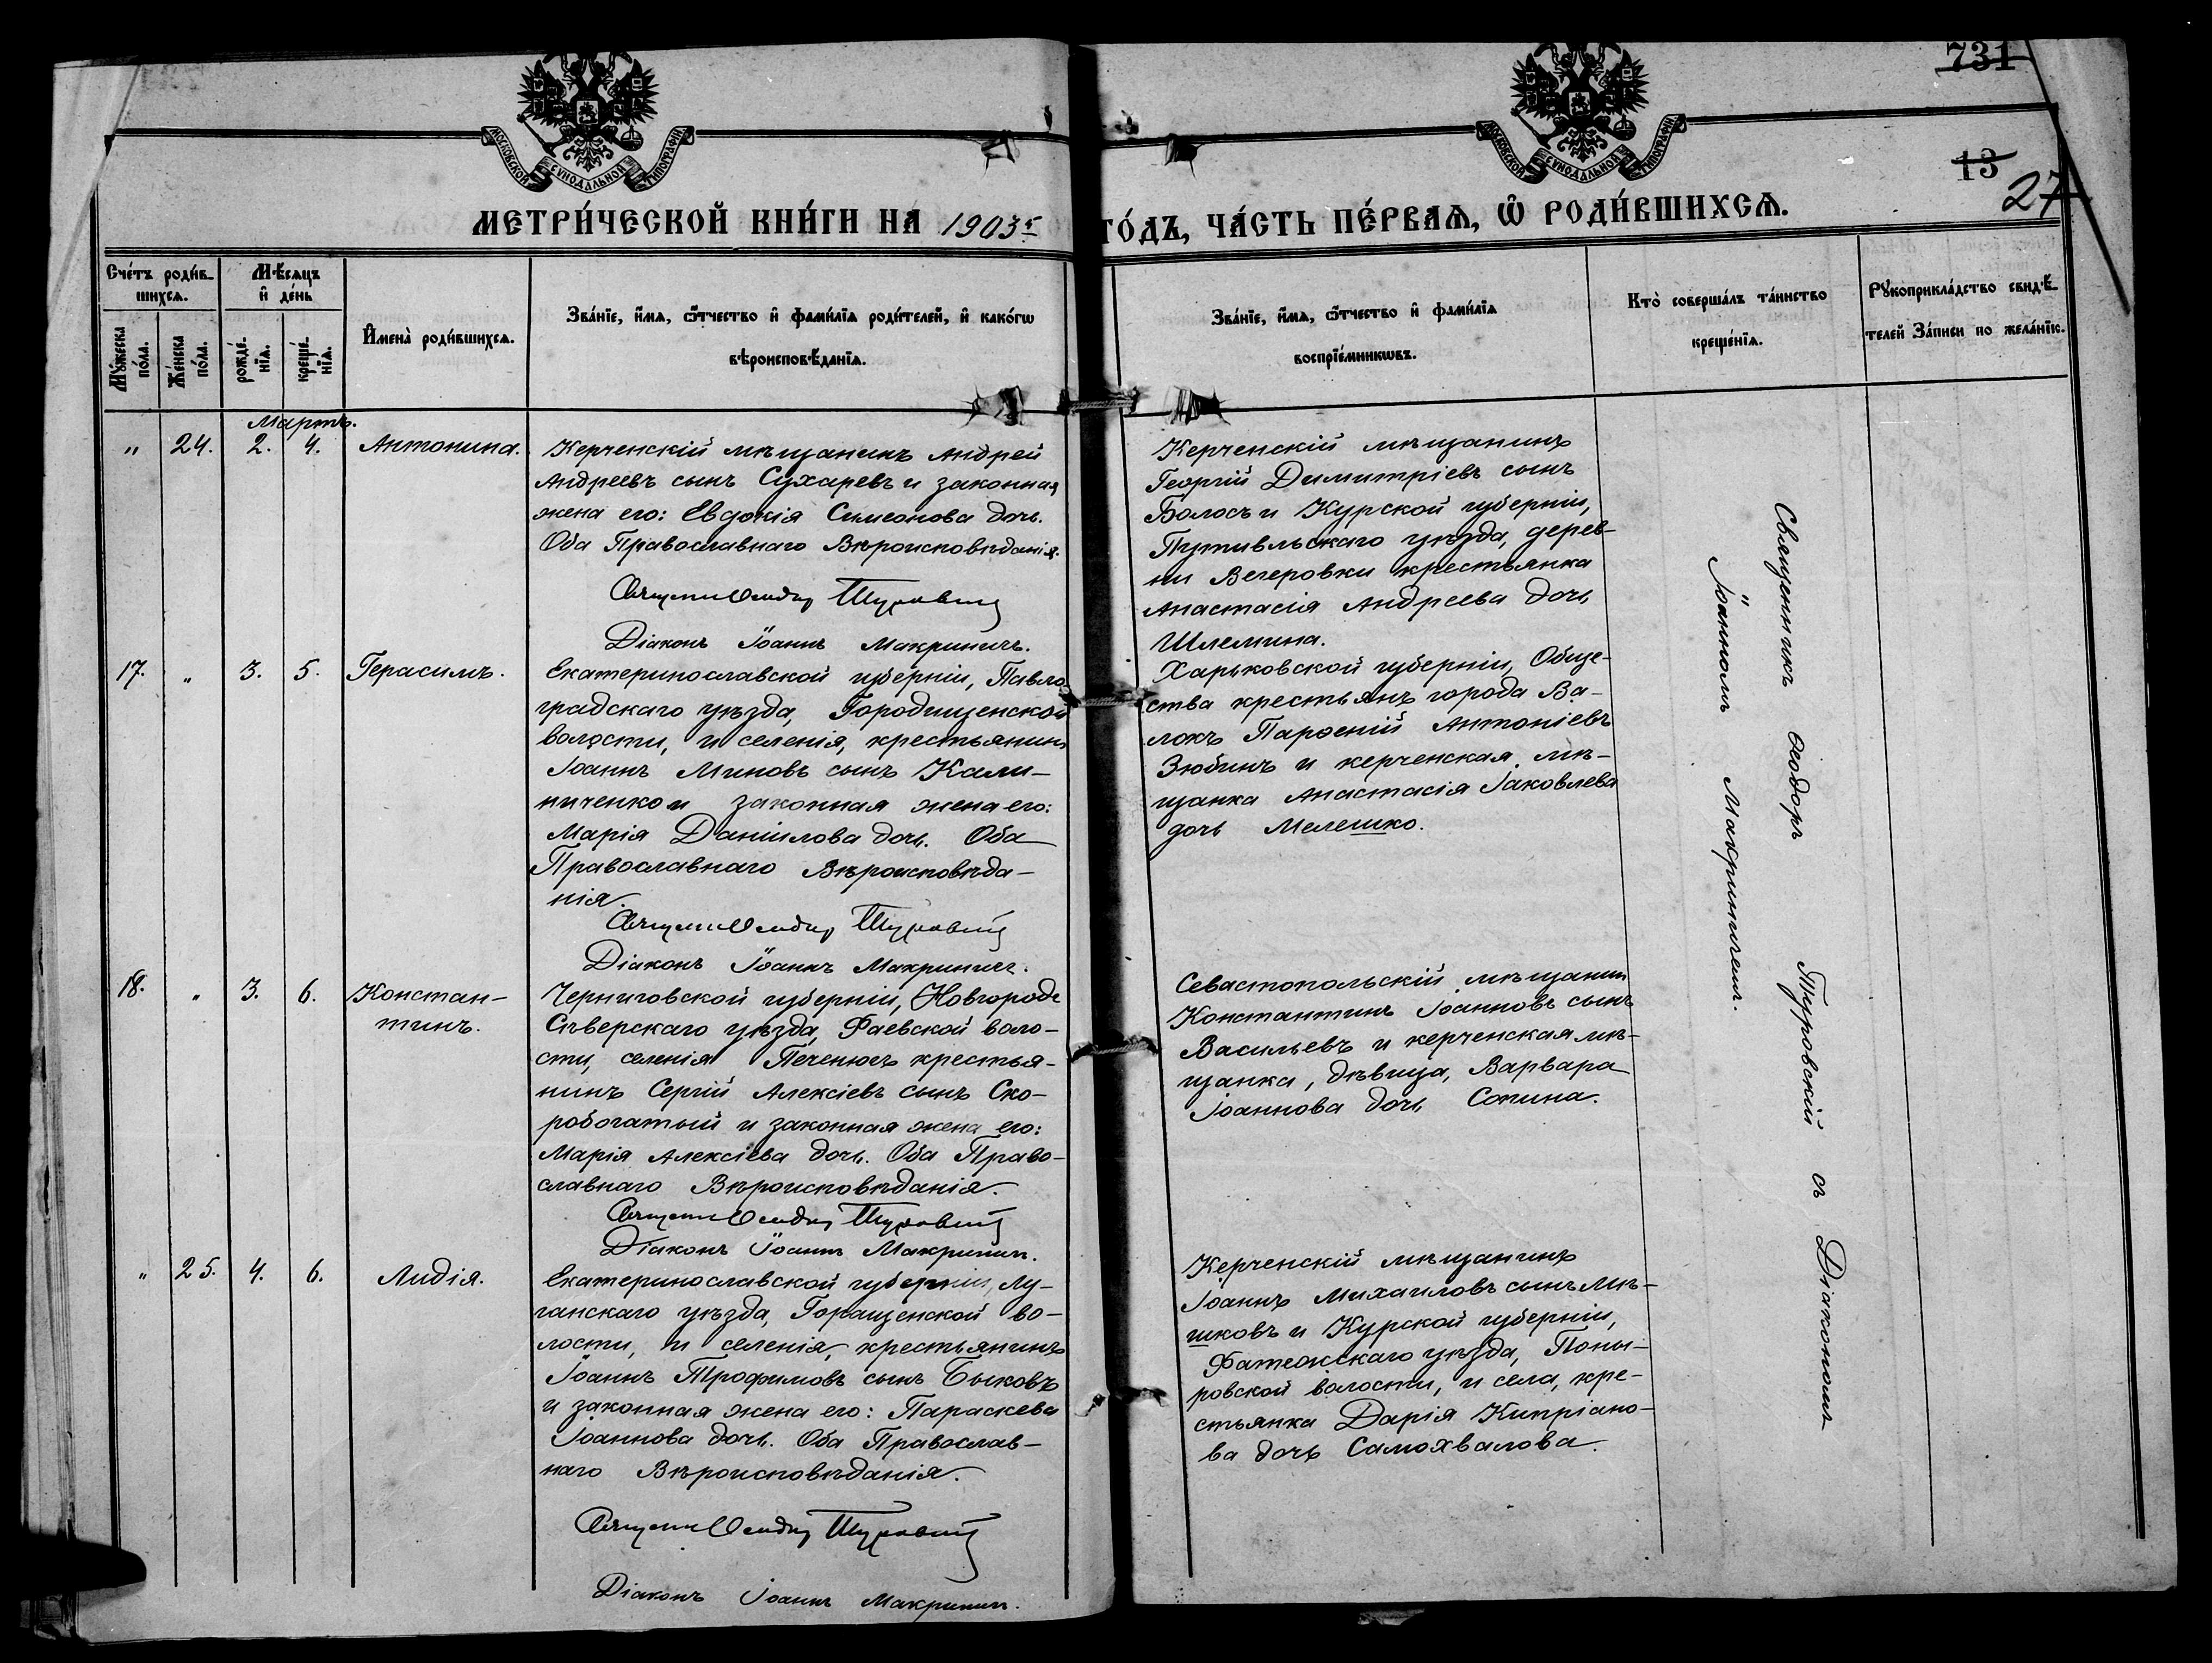 731
13
27
МОСКОВСКОЙ СѴНОДАЛЬНОЙ ТИПОГРАФІИ
МОСКОВСКОЙ СѴНОДАЛЬНОЙ ТИПОГРАФІИ
МЕТРИ́ЧЕСКОЙ КНИ́ГИ НА 1903й
ГО́ДЪ, ЧА́СТЬ ПЕ́РВАѦ, Ѽ РОДИ́ВШИХСѦ.
Сче́тъ роди́в-
шихсѧ.
Мꙋ́жеска по́ла.
Же́нска по́ла.
Мѣ́сѧцъ
и҆ де́нь
рожде́-
нїѧ.
креще́-
нїѧ.
И҆мена̀ роди́вшихсѧ.
Зва́нїе, и҆́мѧ, ѻ҆́тчество и҆ фами́лїѧ роди́телей, и҆ како́гѡ
вѣроисповѣ́данїѧ.
Зва́нїе, и҆́мѧ, ѻ҆́тчество и҆ фами́лїѧ
воспрїе́мникѡвъ.
Кто̀ соверша́лъ та́инство
креще́нїѧ.
Рꙋкоприкла́дство свидѣ́-
телей за́писи по жела́нїю.
Мартъ.
" 24. 2. 4. Антонина.
Керченскій мѣщанинъ Андрей
Андреевъ сынъ Сухаревъ и законная
жена его: Евдокія Симеонова дочь.
Оба Православнаго Вѣроисповѣданія.
Діаконъ Іоаннъ Макриничъ.
Керченскій мѣщанинъ
Георгій Димитріевъ сынъ
Болосъ и Курской губерніи,
Путивльскаго уѣзда, дерев-
ни Вегеровки крестьянка
Анастасія Андреева дочь
Шлемина.
17. " 3. 5. Герасимъ.
Екатеринославской губерніи, Павло-
градскаго уѣзда, Городищенской
волости, и селенія, крестьянинъ
Іоаннъ Миновъ сынъ Кали-
ниченко и законная жена его:
Марія Даніилова дочь. Оба
Православнаго Вѣроисповѣда-
нія.
Діаконъ Іоаннъ Макриничъ.
Харьковской губерніи, Обще-
ства крестьянъ города Ва-
локъ Парѳеній Антоніевъ
Зюбинъ и керченская мѣ-
щанка Анастасія Іаковлева
дочь Мелешко.
18. " 3. 6. Констан-
тинъ.
Черниговской губерніи, Новгородъ
Сѣверскаго уѣзда, Фаевской воло-
сти, селенія Печенюгъ крестья-
нинъ Сергій Алексіевъ сынъ Ско-
робогатый и законная жена его:
Марія Алексіева дочь. Оба Право-
славнаго Вѣроисповѣданія.
Діаконъ Іоаннъ Макриничъ.
Севастопольскій мѣщанинъ
Константинъ Іоанновъ сынъ
Васильевъ и керченская мѣ-
щанка, дѣвица, Варвара
Іоаннова дочь Сопина.
" 25. 4. 6. Лидія.
Екатеринославской губерніи, Лу-
ганскаго уѣзда, Горащенской во-
лости, и селенія, крестьянинъ
Іоаннъ Трофимовъ сынъ Быковъ
и законная жена его: Параскева
Іоаннова дочь. Оба Православ-
наго Вѣроисповѣданія.
Діаконъ Іоаннъ Макриничъ.
Керченскій мѣщанинъ
Іоаннъ Михаиловъ сынъ Мѣ-
шковъ и Курской губерніи,
Фатежскаго уѣзда, Поны-
ровской волости, и села, кре-
стьянка Дарія Кипріано-
ва дочь Самохвалова.
Священникъ Ѳеодоръ Туровскій съ Діакономъ
Іоанномъ Макриничемъ.